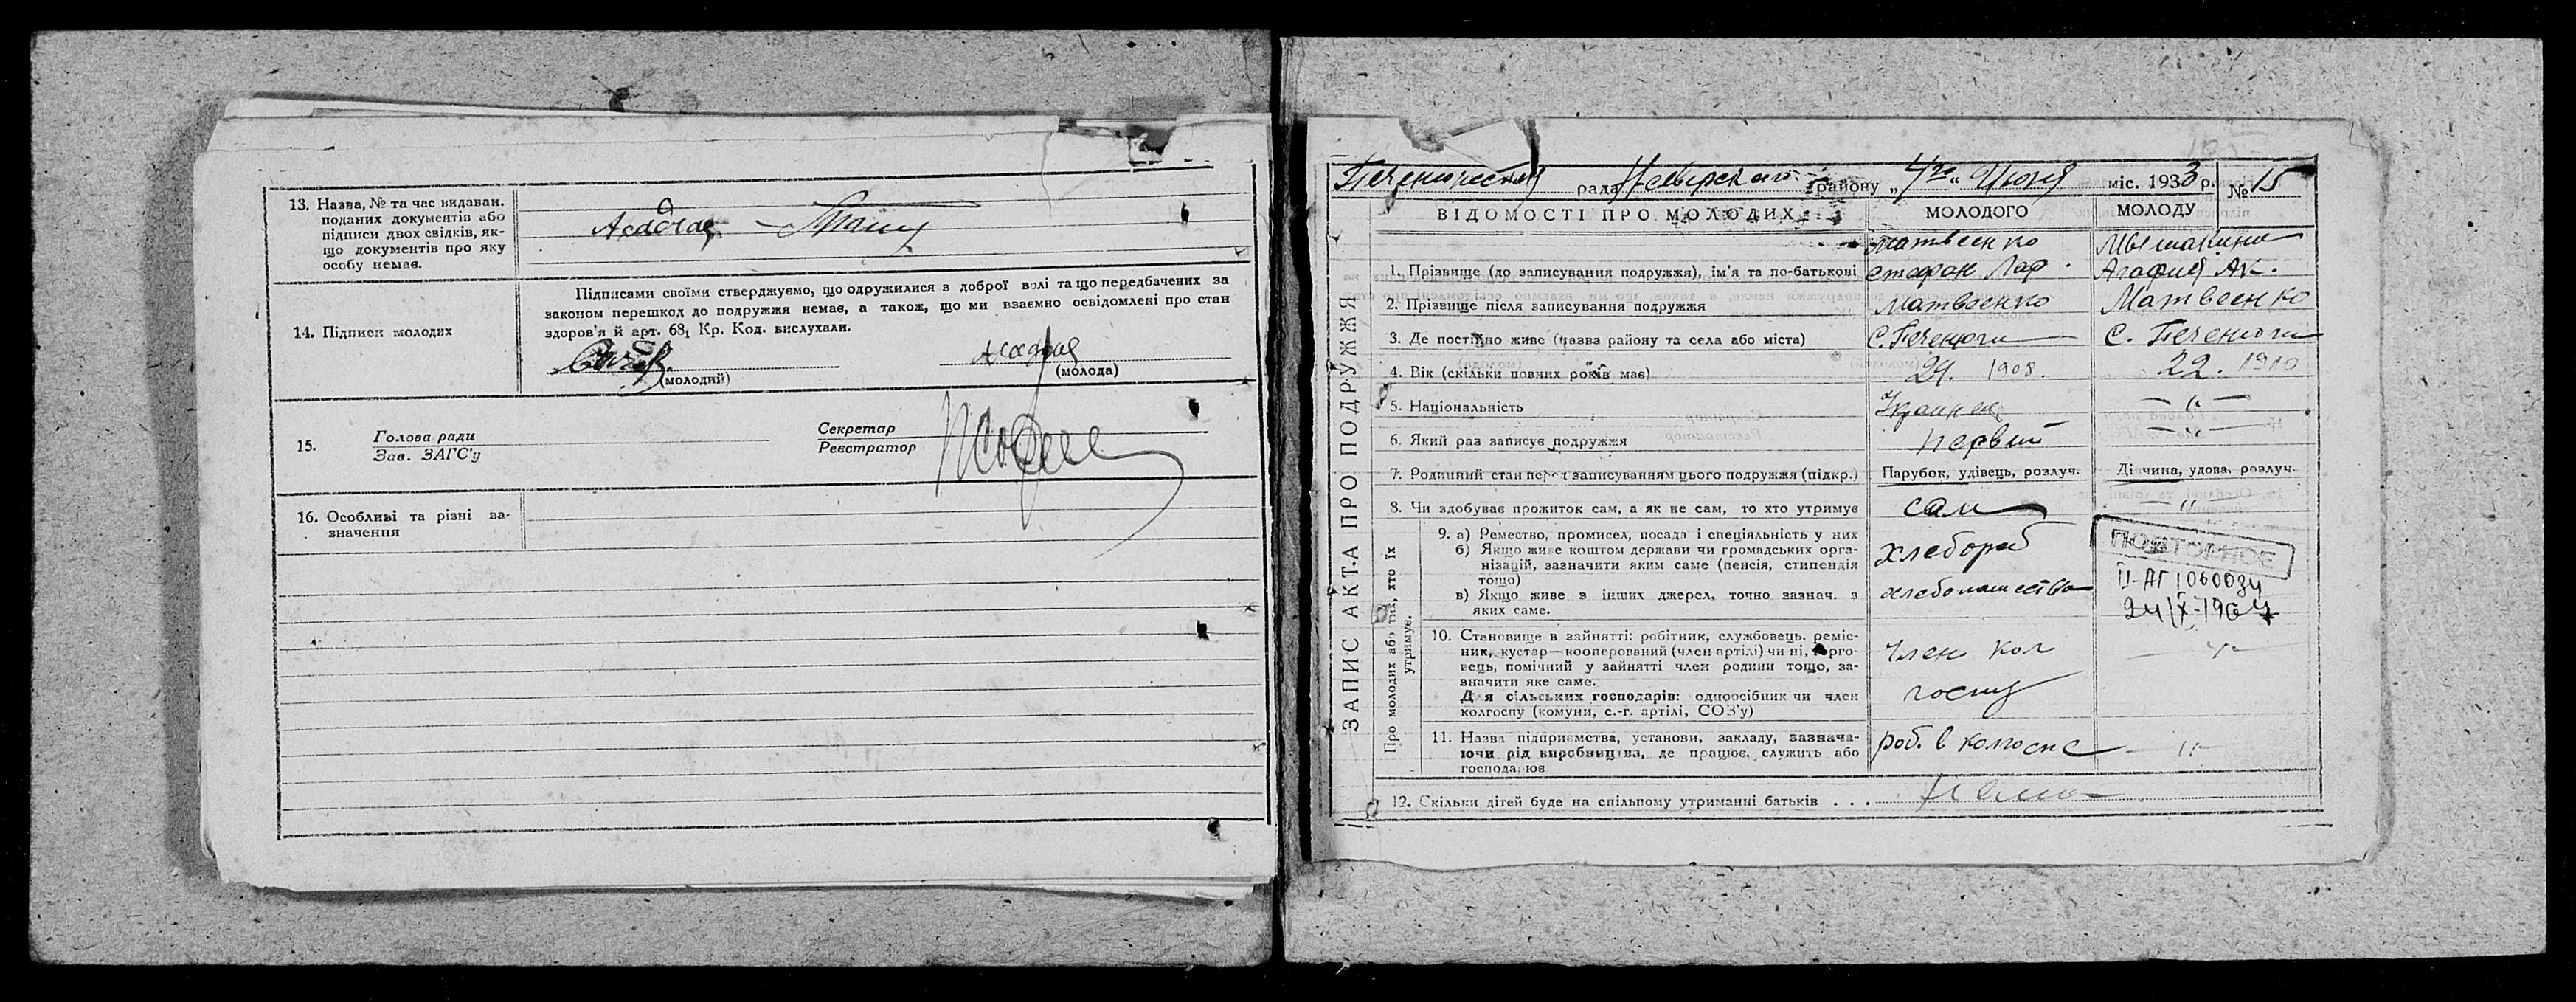 13. Назва, № та час видаван.
поданих документів або
підписи двох свідків, як-
що документів про яку
особу немає.
14. Підписи молодих
Підписами своїми стверджуємо, що одружилися з доброї волі та що передбачених за
законом перешкод до подружжя немає, а також, що ми взаємно освідомлені про стан
здоров'я й арт. 68₁ Кр. Код. вислухали.
(молодий)
(молода)
15.
Голова ради
Зав. ЗАГС'у
Секретар
Реєстратор
16. Особливі та різні за-
значення
ЗАПИС АКТА ПРО ПОДРУЖЖЯ
рада району „4го“ Июня міс. 1933 р. № 15
ВІДОМОСТІ ПРО МОЛОДИХ
МОЛОДОГО
МОЛОДУ
1. Прізвище (до записування подружжя), ім'я та по-батькові
Матвеенко
Стефан Лар.
Агафия Ак.
2. Прізвище після записування подружжя
Матвеенко
Матвеенко
3. Де постійно живе (назва району та села або міста)
С. Печенюги
С. Печенюги
4. Вік (скільки повних років має)
24. 1908.
22. 1910
5. Національність
— „ —
6. Який раз записує подружжя
первий
— „ —
7. Родинний стан перед записуванням цього подружжя (підкр.)
Парубок, удівець, розлуч.
Дівчина, удова, розлуч.
8. Чи здобуває прожиток сам, а як не сам, то хто утримує
сам
— „
Про молодих або тих, хто їх
утримує.
9. а) Ремество, промисел, посада і спеціяльність у них
б) Якщо живе коштом держави чи громадських орга-
нізацій, зазначити яким саме (пенсія, стипендія
тощо)
в) Якщо живе з інших джерел, точно зазнач. з
яких саме.
хлебороб
хлебопашества
ПОВТОРНОЕ
II-АГ 1060034
24/X-1964
10. Становище в зайнятті: робітник, службовець, реміс-
ник, кустар—кооперований (член артілі) чи ні, торго-
вець, помічний у зайнятті член родини тощо, за-
значити яке саме.
Для сільських господарів: одноосібник чи член
колгоспу (комуни, с.-г. артілі, СОЗ'у)
член кол
госпу
— „ —
11. Назва підприємства, установи, закладу, зазнача-
ючи рід виробництва, де працює, служить або
господарює
роб. в колгоспе
— „ —
12. Скільки дітей буде на спільному утриманні батьків . . .